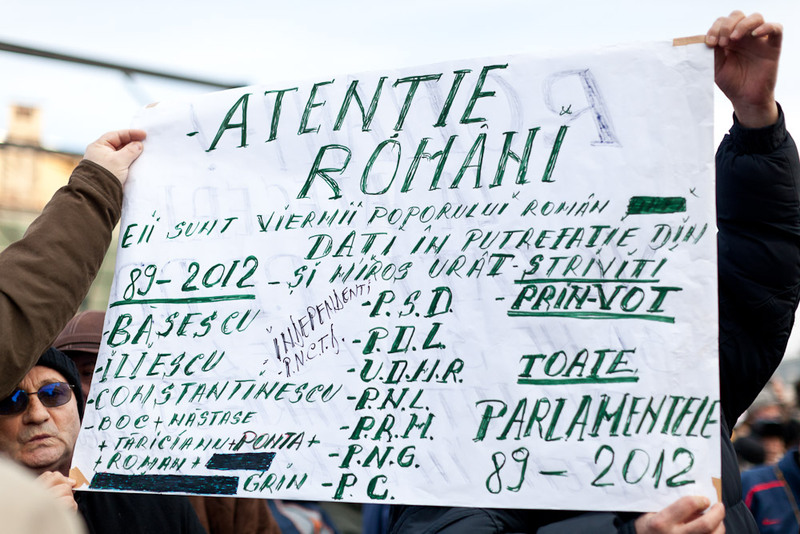 -ATENȚIE
ROMÂNI
EII SUNT VIERMII POPORULUI ROMÂN
DAȚI ÎN PUTREFAȚIE DIN
89-2012 - ȘI MIROS URÂT-STRIVIȚI
-PRIN-VOT
-BĂSESCU
-ILIESCU
-CONSTANTINESCU
-BOC+NĂSTASE
+TARICIANU+PONTA+
+ROMAN+
GRIN
INDEPENDENȚI
-P.S.D.
-P.D.L.
-U.D.M.R.
-P.N.L.
-P.R.M.
-P.N.G.
-P.C.
TOATE
PARLAMENTELE
89-2012